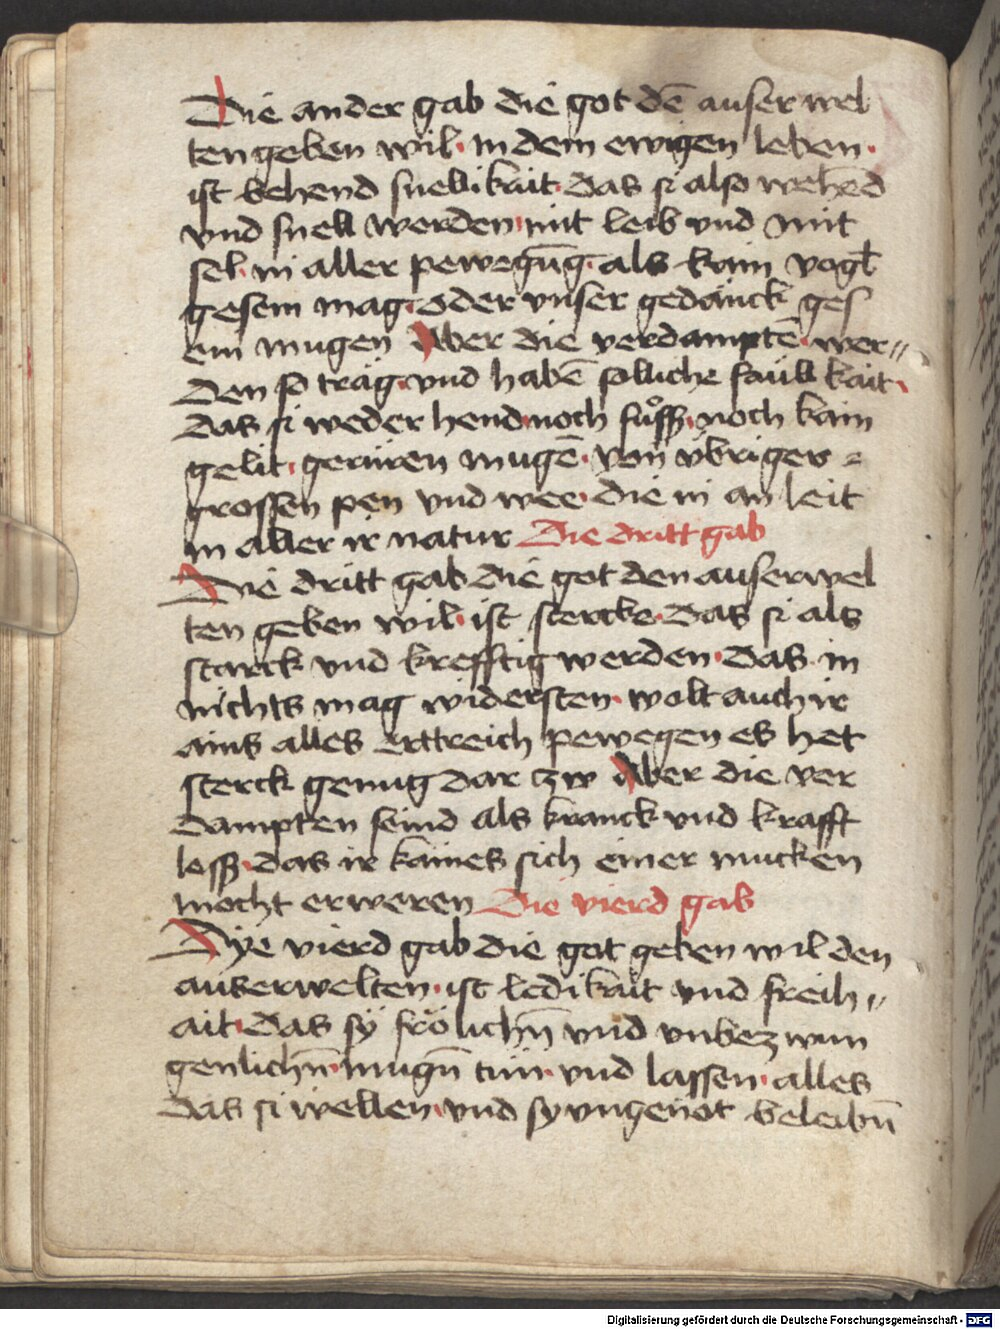 Die ander gab die got dē auserwel
ten geben wil · in dem ewigen leben ·
ist behend snellikait · das si also wehēd
vnd snell werden · mit leib vnd mit
sel · in aller pewegūg · als kain vogl
gesein mag · oder vnser gedänck ges
ein mugen Aber die verdamptē · wer〃
den so träg · vnd habē solliche fäull kait ·
das si weder hend · noch fuͦsß · noch kain
gelit · gerüren mugē · von vbriger =
grossen pen vnd wee · die in an leit
in aller ir natur Die dritt gab
Die dritt gab die got den auserwel
ten geben wil · ist stercke · das si als
starck vnd krefftig werden · das in
nichts mag widersten · wolt auch ir
ains alles erttreich pewegen es het
sterck genug dar czw Aber die ver
dampten seind als kranck vnd krafft
losß · das ir kaines sich einer mucken
mocht erweren Die vierd gab
Dye vierd gab die got geben wil den
auserwelten · ist ledikait vnd freih〃
ait · das sÿ frölichn̄ vnd vnbezwun
genlichn̄ · mugn̄ tun · vnd lassen · alles
das si wellen · vnd sy vngenot beleibn̄
Digitalisierung gefördert durch die Deutsche Forschungsgemeinschaft - DFG